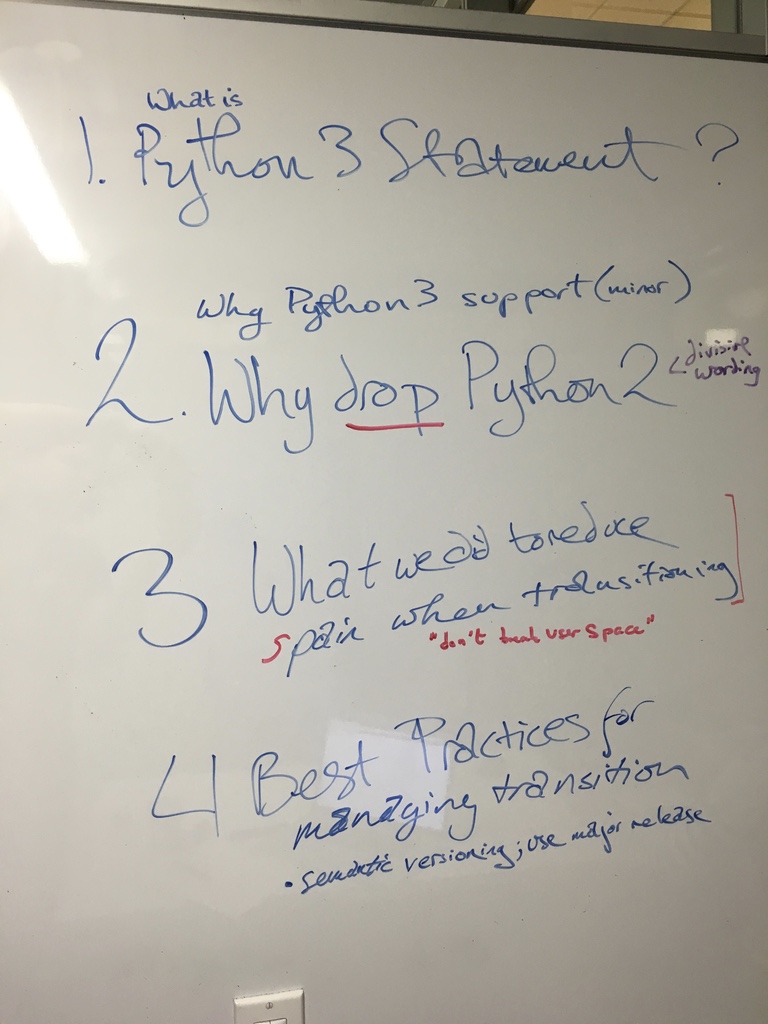 What is
1. Python 3 Statement ?
Why Python 3 support (minor)
2. Why drop Python 2 < divisive
wording
3 What we did to reduce
spain when transitioning
"don't break user space"
4 Best Practices for
managing transition
• semantic versioning; use major release